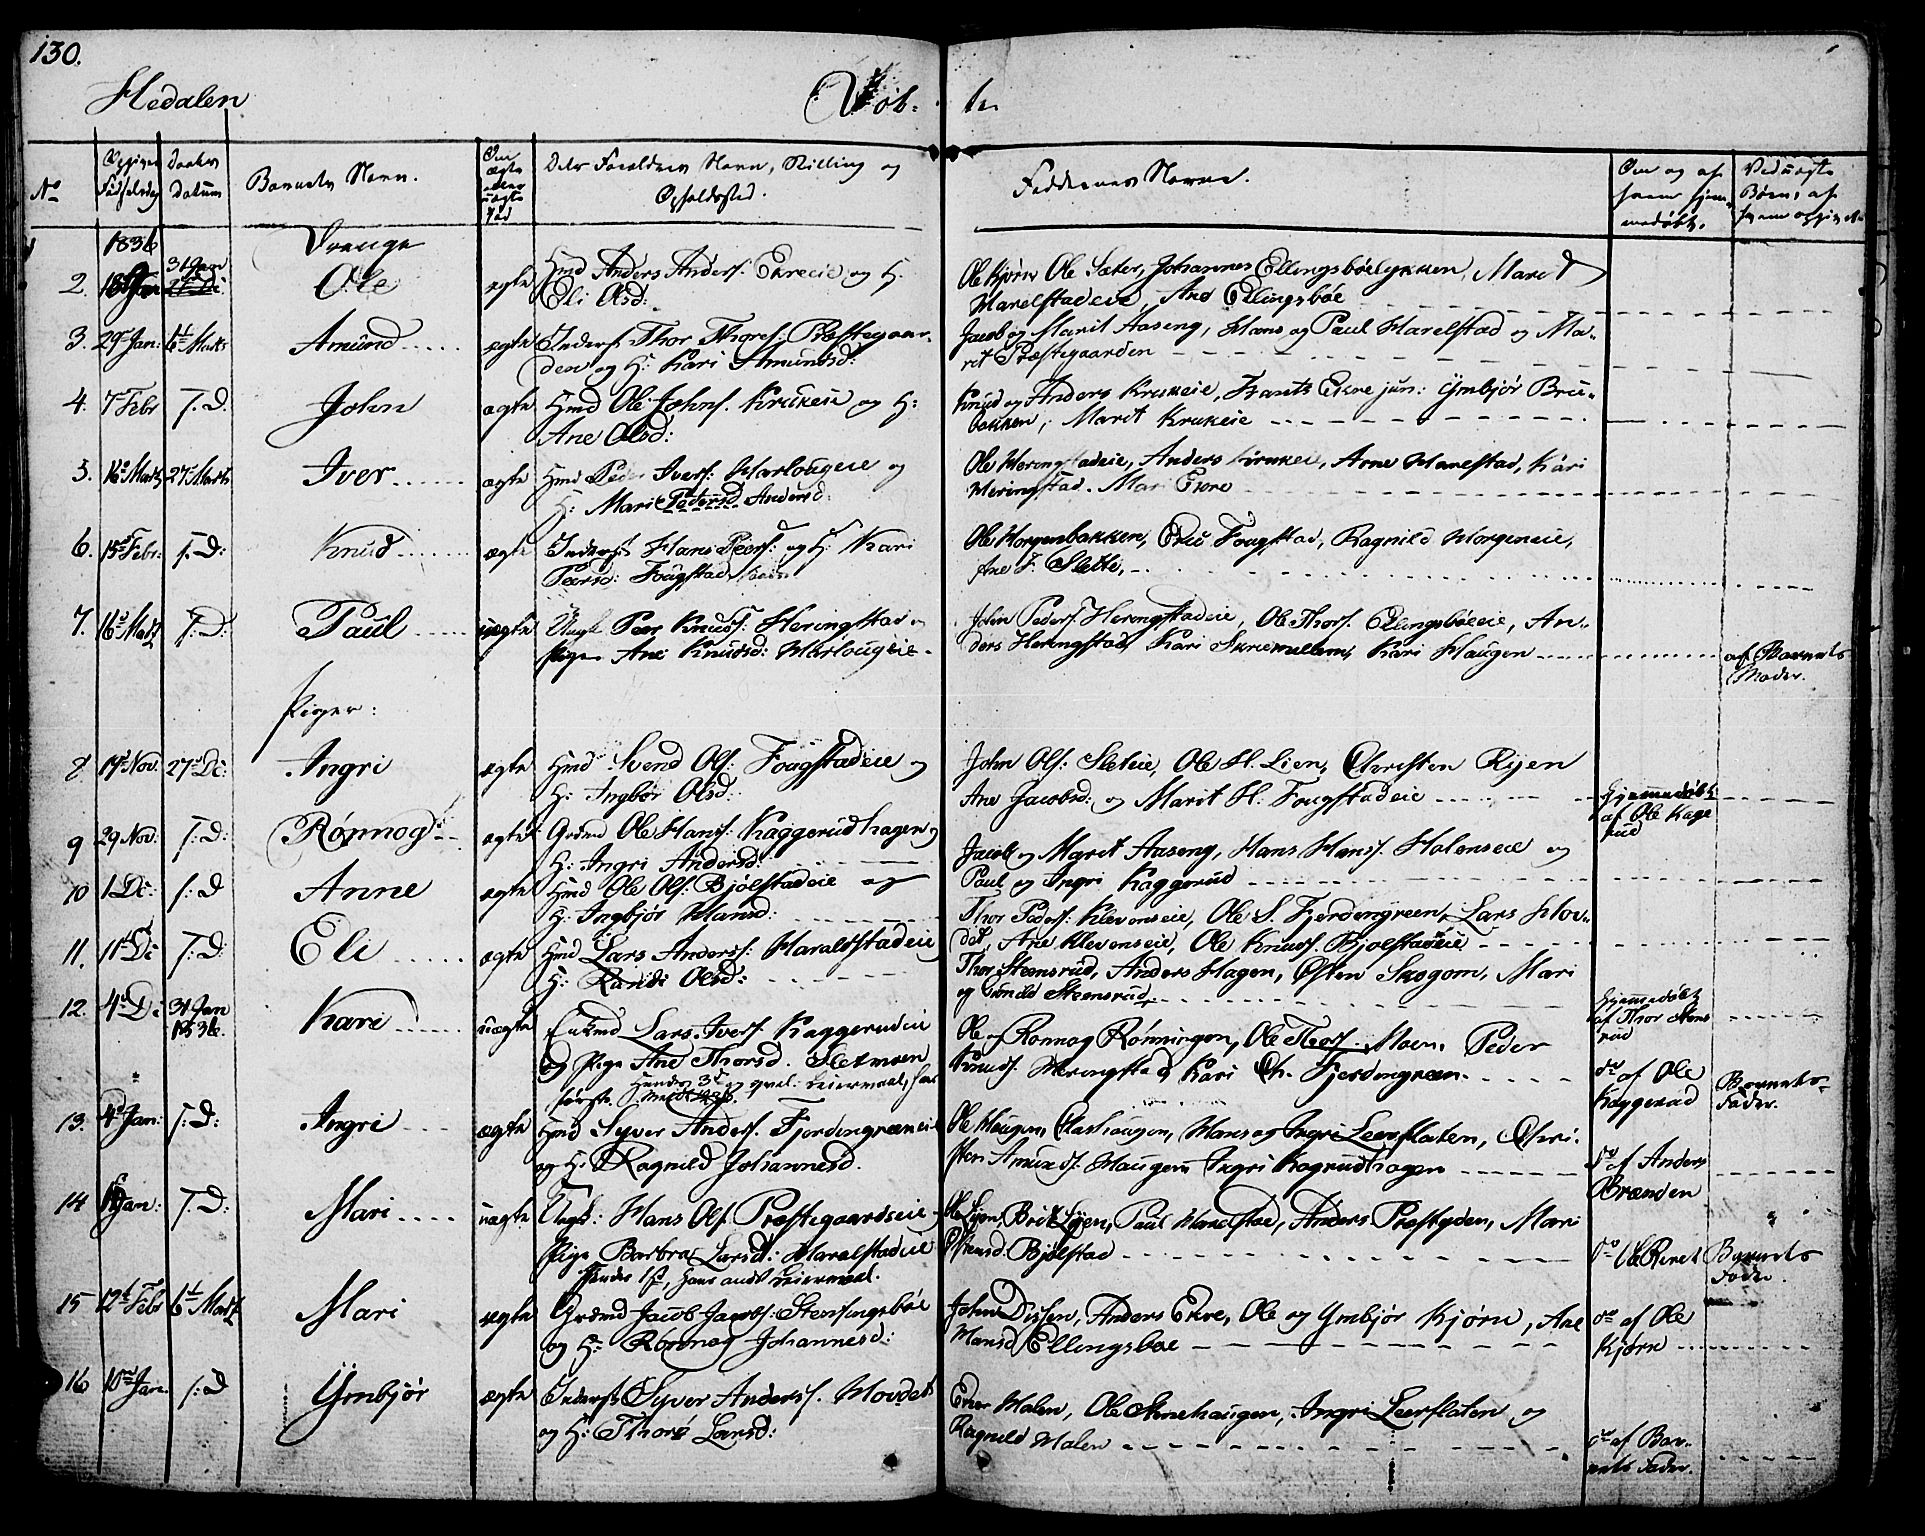 130.
Hedalen
Døb- te
No
Opgiven Fødselsdag
Daabs Datum
Barnets Navn.
Om ægte eller uægte fød
Dets Forældres Navn, Stilling og Opholdssted.
Faddernes Navne.
Om og af hvem hjemmedøbt.
Ved uægte Børn, af hvem opgivet
1836
Drenge
2. 31 Jan Ole ægte Hmd Anders Anders. Ekreeie og H. Eli Olsd:
Ole Kjørn Ole Sæter, Johannes Ellingsbøelykken, Marit
Harelstadeie, Ane Ellingsbøe
3. 29 Jan: 6t Marts Amund ægte Inderst Thor Thores: Præstegaar-
den og H: Kari Amundsd:
Jacob og Marit Aaseng, Hans og Paul Harelstad og Ma-
rit Præstegaarden
4. 7 Febr T. D. John ægte Hmd Ole Johns. Krukeie og H:
Ane Olsd:
Knud og Anders Krukeie, Frants Ekre jun: Ymbjør Bru-
bakken, Marit Krukeie
5. 16 Marts 27 Marts Iver ægte Hmd Peder Ivers: Harlougeie og
H: Mari Pedersd Andersd:
Ole Heringstadeie, Anders Krukeie, Arne Harelstad, Kari
Heringstad. Mari Ekre
6. 15 Febr. T. D: Knud ægte Inderst Hans Peers: og H: Kari
Peersd: Fougstad
Ole Horgenbakken, Eric Fougstad, Ragnild Horgeneie,
Ane F. Slette,
7. 16 Marts T. D: Paul uægte Ungk Peer Knuds: Heringstad og
Pige Ane Knudsd: Harlougeie
John Peders. Heringstadeie, Ole Thors. Ellingsbøeeie, An-
ders Heringstad, Kari Skriemellem, Kari Haugen
af Barnets Moder.
Piger:
8 17 Nov. 27 De: Ingri ægte Hmd Svend Ols: Fougstadeie og
H: Ingbør Olsd:
John Ols: Sleteie, Ole H. Lien, Christen Rijen
Ane Jacobsd: og Marit H. Fougstadeie
Hjemmedøbt af Ole Kagerud
9 29 Nov: T. D: Rønnog ægte Grdmd Ole Hans: Kaggerudhagen og
H: Ingri Andersd:
Jacob og Marit Aaseng, Hans Hans. Halenseie og
Paul og Ingri Kaggerud
10 1 De: T. D Anne ægte Hmd Ole Ols: Bjølstadeie og
H: Ingbjør Hansd:
Thor Peders: Klevenseie, Ole S. Fjerdengreen, Lars Hov-
det, Ane Klevenseie, Ole Knuds. Bjølstadeie
11. 11 De T. D: Eli ægte Hmd Lars Anders: Haraldstadeie
H: Randi Olsd:
Thor Steensrud, Anders Hagen, Østen Skogom, Mari
og Gunild Steensrud
Hjemmedøbt af Thor Stensrud
12. 4 De 31 Jan 1836. Kari uægte Enkmd Lars Ivers. Kaggerudeie
og Pige Ane Thorsd. Sletmoen
Hendes 3die og qval: Leiermaal, hans
første.
Ole og Ronnog Rønningen, Ole Thors. Moen. Peder
Knuds. Heringstad Kari Ch. Fjerdengreen.
do af Ole Kaggerud
Barnets Fader.
13. 4 Jan: T. D: Ingri ægte Hmd Syver Anders. Fjerdengreneie
og H: Ragnild Johannesd.
Ole Haugen, Hans og Ingri Leerflaten, Chri-
sten Amunds. Haugen Ingri Kagrudhagen
do af Anders Brænden
14 Jan: T. D: Mari uægte Ungk: Hans Ols. Præstegaardseie
Pige Barbra Larsd: Haralstadeie
Hendes 1ste, hans andet Leiermaal.
Ole Lijen, Brit Lijen, Paul Harelstad, Anders Præstgden, Mari
Østensd. Bjølstad
do Barnets Fader.
15 12t Febr 6t Marts Mari ægte Grdmd Jacob Jacobs: Stensingsbøe
og H: Ronnog Johannesd:
John Dissen, Anders Ekre, Ole og Ymbjør Kjørn, Ane
Hansd Ellingsbøe
do af Ole Kjørn
16 10 Jan. T. D Ymbjør ægte Inderst Syver Anders. Hovdet
og H: Thore Larsd:
Halen, Ole Stenehaugen, Ingri Leerflaten og
Ragnild Halen
do af Barnets Fader.